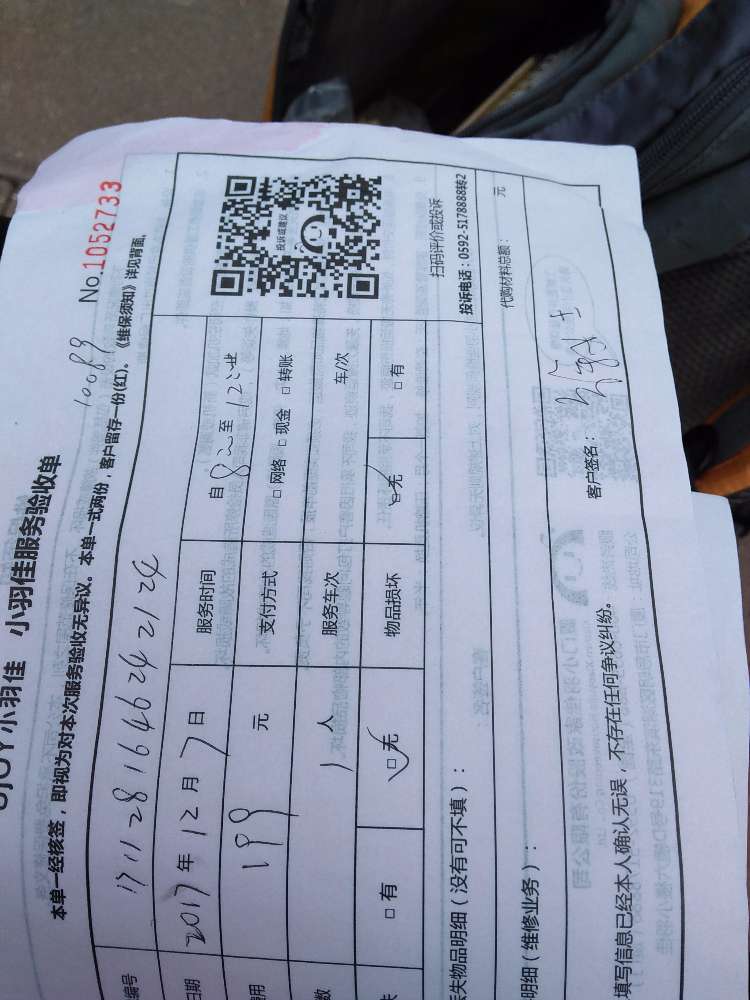 小羽佳 小羽佳服务验收单
本单一经核签，即视为对本次服务验收无异议。本单一式两份，客户留存一份(红)。《维保须知》详见背面。
10089 No.1052733
编号 171128164624 2124
日期 2017 年 12 月 7 日 服务时间 自 8:00 至 12:00
费用 199 元 支付方式 □ 网络 □ 现金 □ 转账
数 1 人 服务车次 车/次
失 □ 有 □ 无 物品损坏 □ 无 □ 有
投诉或建议
扫码评价或投诉
投诉电话：0592-5178888转2
失物品明细（没有可不填）：
明细（维修业务）： 代购材料总额： 元
填写信息已经本人确认无误，不存在任何争议纠纷。 客户签名：